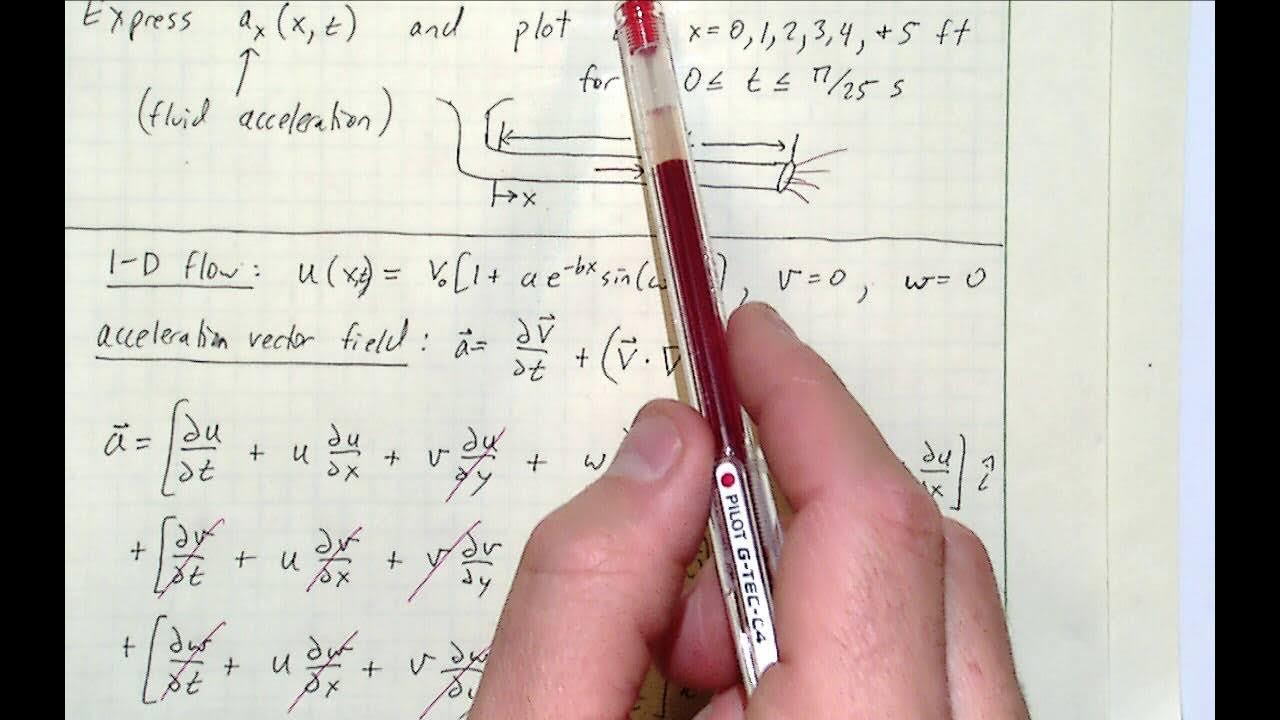 Express aₓ(x,t) and plot x=0,1,2,3,4,+5 ft
for 0≤ t ≤ π/25 s
(fluid acceleration)
x
1-D flow: u(x,t)= V₀[1+ ae^-bx sin( ], v=0, w=0
acceleration vector field: a⃗= ∂V⃗/∂t + (V⃗·∇
a⃗= [∂u/∂t + u ∂u/∂x + v ∂u/∂y + w ∂u/∂x] î
+[∂v/∂t + u ∂v/∂x + v ∂v/∂y
+[∂w/∂t + u ∂w/∂x + v ∂w/∂y
PILOT G-TEC-C4